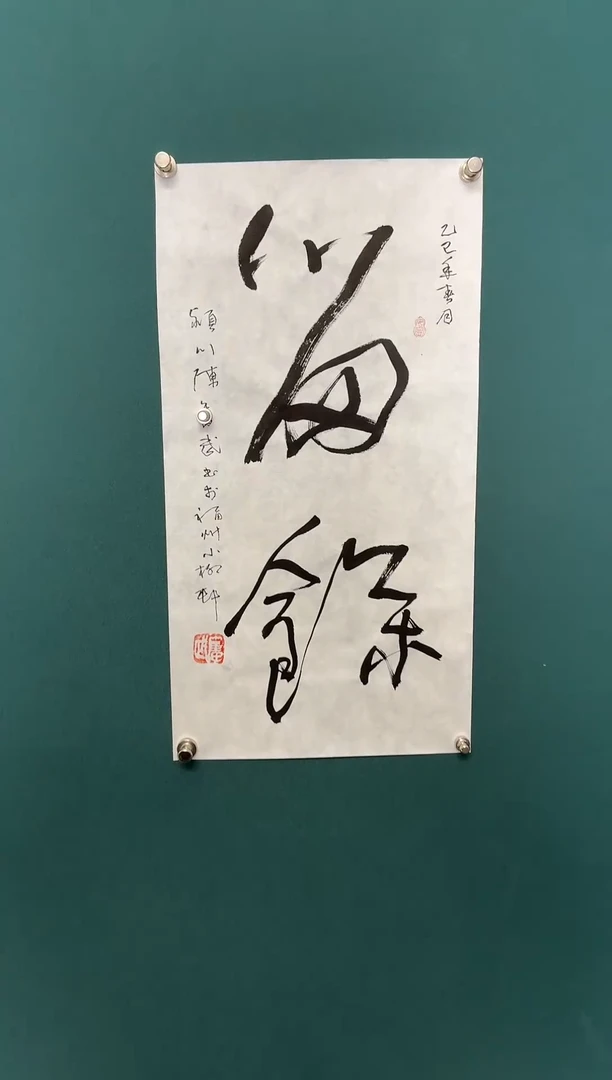 乙巳年春月
留餘
潁川陳 武書於福州小柳軒